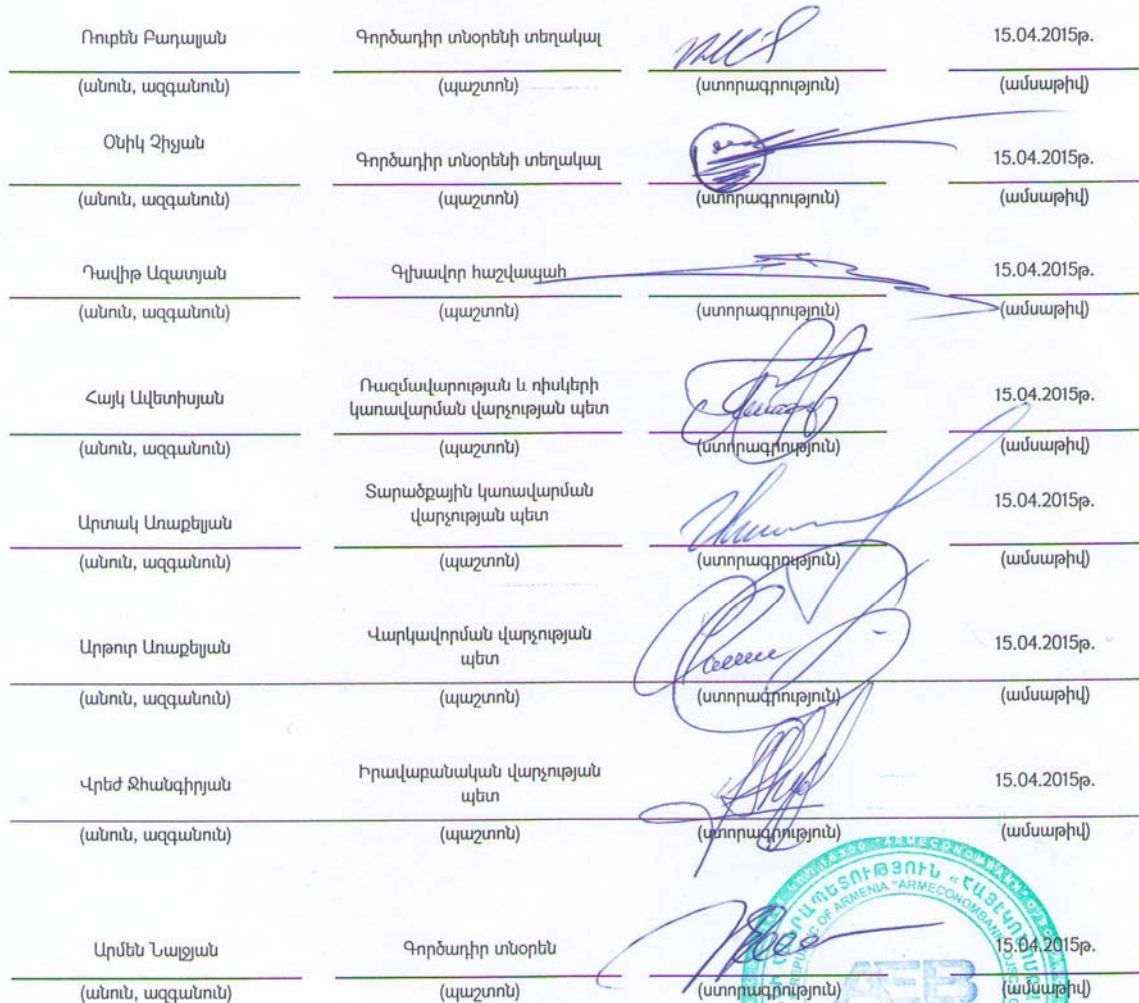 Ռուբեն Բադալյան Գործադիր տնօրենի տեղակալ 15.04.2015թ.
(անուն, ազգանուն) (պաշտոն) (ստորագրություն) (ամսաթիվ)
Օնիկ Չիչյան Գործադիր տնօրենի տեղակալ 15.04.2015թ.
(անուն, ազգանուն) (պաշտոն) (ստորագրություն) (ամսաթիվ)
Դավիթ Ազատյան Գլխավոր հաշվապահ 15.04.2015թ.
(անուն, ազգանուն) (պաշտոն) (ստորագրություն) (ամսաթիվ)
Հայկ Ավետիսյան Ռազմավարության և ռիսկերի
կառավարման վարչության պետ 15.04.2015թ.
(անուն, ազգանուն) (պաշտոն) (ստորագրություն) (ամսաթիվ)
Արտակ Առաքելյան Տարածքային կառավարման
վարչության պետ 15.04.2015թ.
(անուն, ազգանուն) (պաշտոն) (ստորագրություն) (ամսաթիվ)
Արթուր Առաքելյան Վարկավորման վարչության
պետ 15.04.2015թ.
(անուն, ազգանուն) (պաշտոն) (ստորագրություն) (ամսաթիվ)
Վրեժ Ջհանգիրյան Իրավաբանական վարչության
պետ 15.04.2015թ.
(անուն, ազգանուն) (պաշտոն) (ստորագրություն) (ամսաթիվ)
Արմեն Նալջյան Գործադիր տնօրեն 15.04.2015թ.
(անուն, ազգանուն) (պաշտոն) (ստորագրություն) (ամսաթիվ)
REPUBLIC OF ARMENIA "ARMECONOMBANK" OJSC
AEB